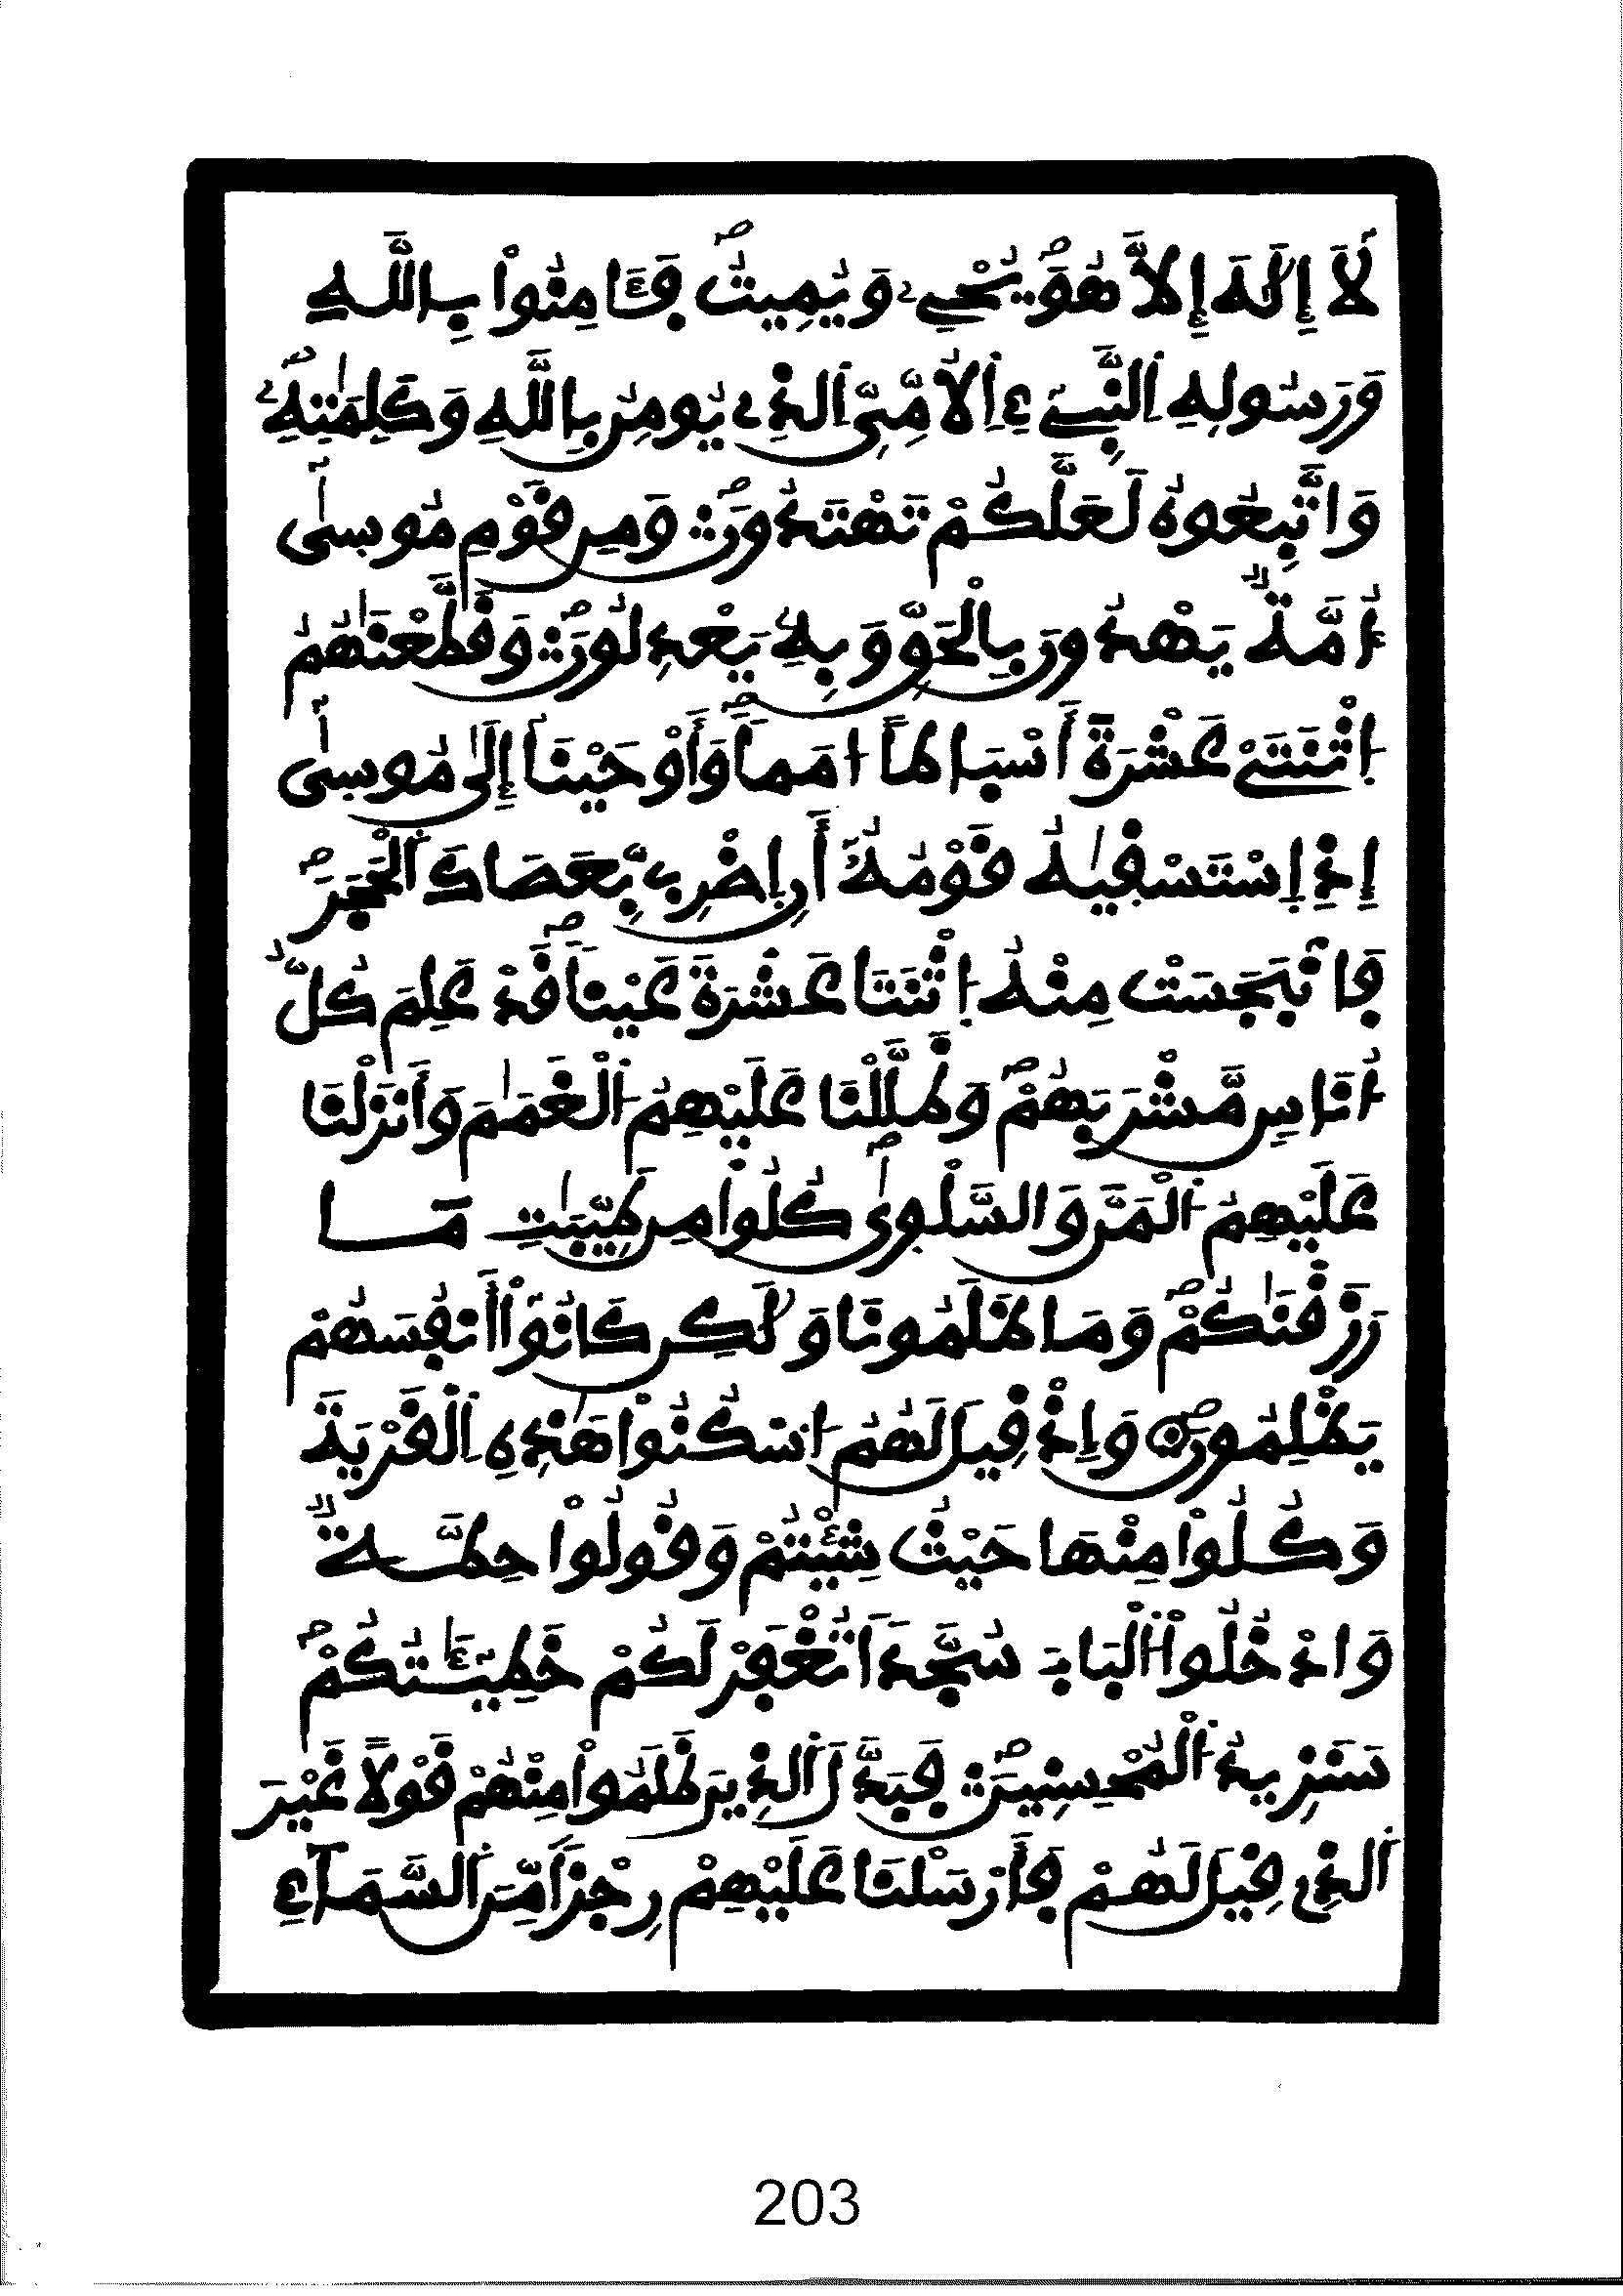 لَا إِلَٰهَ إِلَّا هُوَ يُحْيِۦ وَيُمِيتُ فَـَٔامِنُوا۟ بِاللَّهِ
وَرَسُولِهِ اِ۬لنَّبِےٓءِ اِ۬لُامِّيِّ اِ۬لذِے يُومِنُ بِاللَّهِ وَكَلِمَٰتِهِۦ
وَاتَّبِعُوهُ لَعَلَّكُمْ تَهْتَدُونَ وَمِن قَوْمِ مُوسَىٰٓ
أُمَّةٌ يَهْدُونَ بِالْحَقِّ وَبِهِۦ يَعْدِلُونَ وَقَطَّعْنَٰهُمُ
اُ۪ثْنَتَےْ عَشْرَةَ أَسْبَاطًا اُمَمًا وَأَوْحَيْنَآ إِلَىٰ مُوسَىٰٓ
إِذِ اِ۪سْتَسْقَيٰهُ قَوْمُهُۥٓ أَنِ اِ۪ضْرِب بِّعَصَاكَ اَ۬لْحَجَرَ
فَانۢبَجَسَتْ مِنْهُ اُ۪ثْنَتَا عَشْرَةَ عَيْنًا قَدْ عَلِمَ كُلُّ
أُنَاسٍ مَّشْرَبَهُمْ وَظَلَّلْنَا عَلَيْهِمُ اُ۬لْغَمَٰمَ وَأَنزَلْنَا
عَلَيْهِمُ اُ۬لْمَنَّ وَالسَّلْوَىٰ كُلُوا۟ مِن طَيِّبَٰتِ مَا
رَزَقْنَٰكُمْ وَمَا ظَلَمُونَا وَلَٰكِن كَانُوٓا۟ أَنفُسَهُمْ
يَظْلِمُونَ وَإِذْ قِيلَ لَهُمُ اُ۟سْكُنُوا۟ هَٰذِهِ اِ۬لْقَرْيَةَ
وَكُلُوا۟ مِنْهَا حَيْثُ شِئْتُمْ وَقُولُوا۟ حِطَّةٌ
وَادْخُلُوا۟ اُ۬لْبَابَ سُجَّدًا تُغْفَرْ لَكُمْ خَطِيٓـَٰٔتُكُمْ
سَنَزِيدُ اُ۬لْمُحْسِنِينَ فَبَدَّلَ اَ۬لذِينَ ظَلَمُوا۟ مِنْهُمْ قَوْلًا غَيْرَ
اَ۬لذِے قِيلَ لَهُمْ فَأَرْسَلْنَا عَلَيْهِمْ رِجْزًا مِّنَ اَ۬لسَّمَآءِ
203